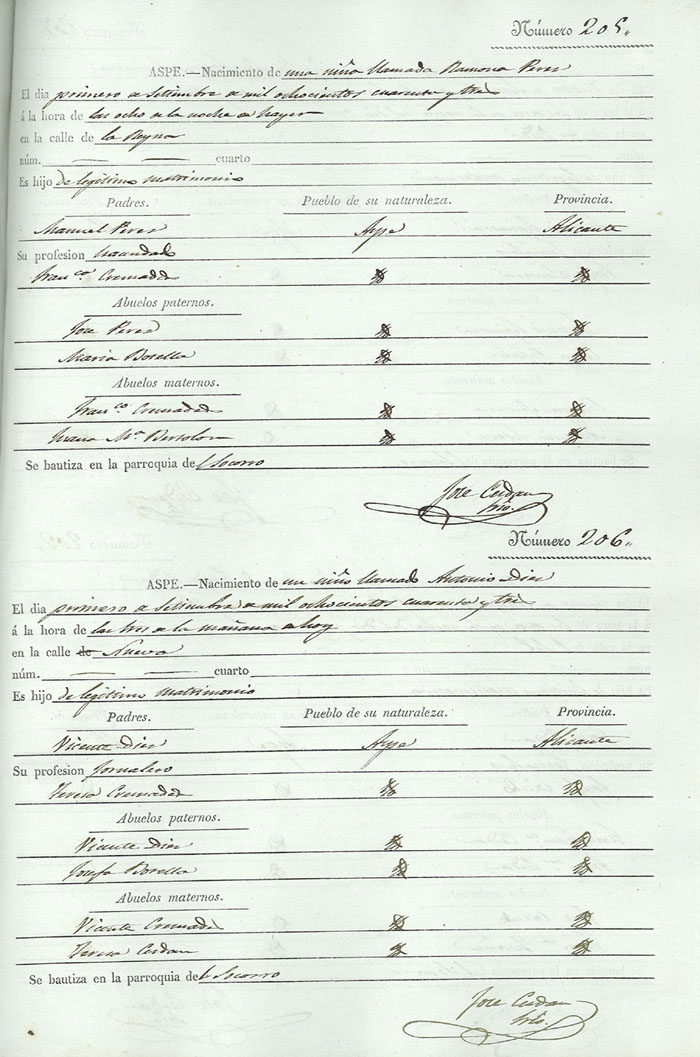 Número 205.
ASPE.—Nacimiento de una niña llamada Ramona Perez
El dia primero de Setiembre de mil ochocientos cuarenta y tres
á la hora de las ocho de la noche de hayer
en la calle de la Reyna
núm. cuarto
Es hijo de legitimo matrimonio
Padres. Pueblo de su naturaleza. Provincia.
Manuel Perez Aspe Alicante
Su profesion
Franco. Cremades
Abuelos paternos.
Jose Perez
Maria Botella
Abuelos maternos.
Franco. Cremades
Ma.
Se bautiza en la parroquia del Socorro
Jose Cerdan
Srio.
Número 206.
ASPE.—Nacimiento de un niño llamado Antonio Diez
El dia primero de Setiembre de mil ochocientos cuarenta y tres
á la hora de las tres de la mañana de hoy
en la calle de Nueva
núm. cuarto
Es hijo de legitimo matrimonio
Padres. Pueblo de su naturaleza. Provincia.
Vicente Diez Aspe Alicante
Su profesion Jornalero
Teresa Cremades
Abuelos paternos.
Vicente Diez
Josefa Botella
Abuelos maternos.
Vicente Cremades
Teresa Cerdan
Se bautiza en la parroquia del Socorro
Jose Cerdan
Srio.